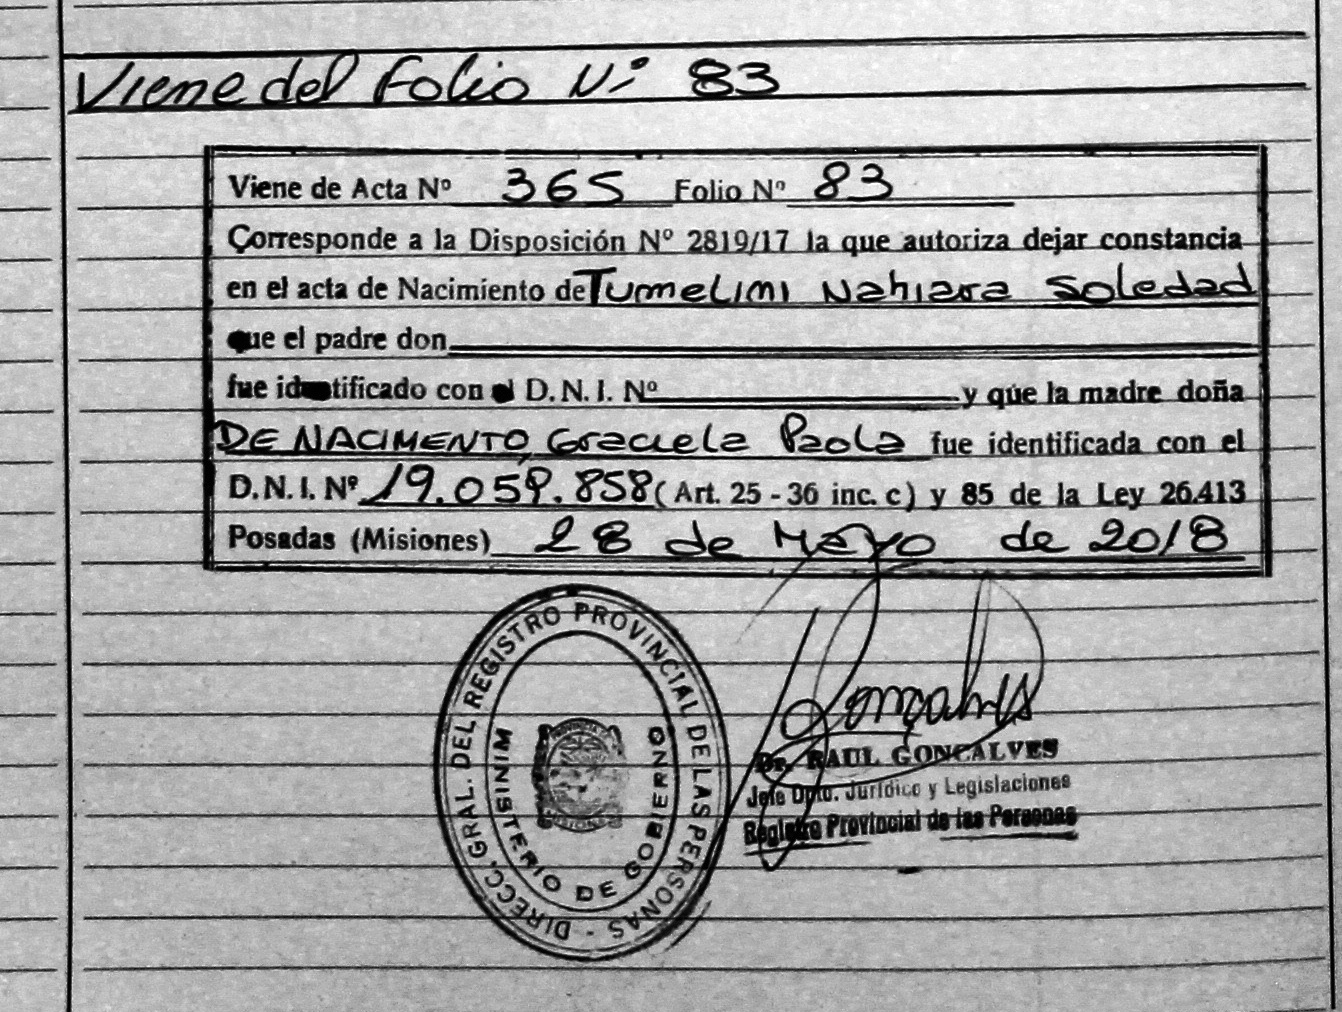 Viene del Folio Nº 83
Viene de Acta Nº 365 Folio Nº 83
Corresponde a la Disposición Nº 2819/17 la que autoriza dejar constancia
en el acta de Nacimiento de Tumelini Nahiara Soledad
que el padre don
fue identificado con el D.N.I. Nº y que la madre doña
DE NACIMENTO, Graciela Paola fue identificada con el
D.N.I. Nº 19.059.858 (Art. 25 - 36 inc. c) y 85 de la Ley 26.413
Posadas (Misiones) 28 de Mayo de 2018
DIRECC. GRAL. DEL REGISTRO PROVINCIAL DE LAS PERSONAS -
MINISTERIO DE GOBIERNO
MISIONES
Gonçalves
Dr. RAUL GONCALVES
Jefe Dpto. Jurídico y Legislaciones
Registro Provincial de las Personas